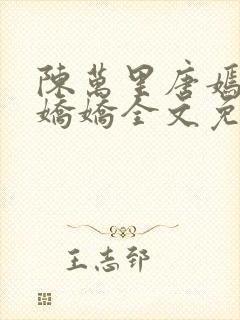 陳萬里唐嫣
嬌嬌全文免
王志郅